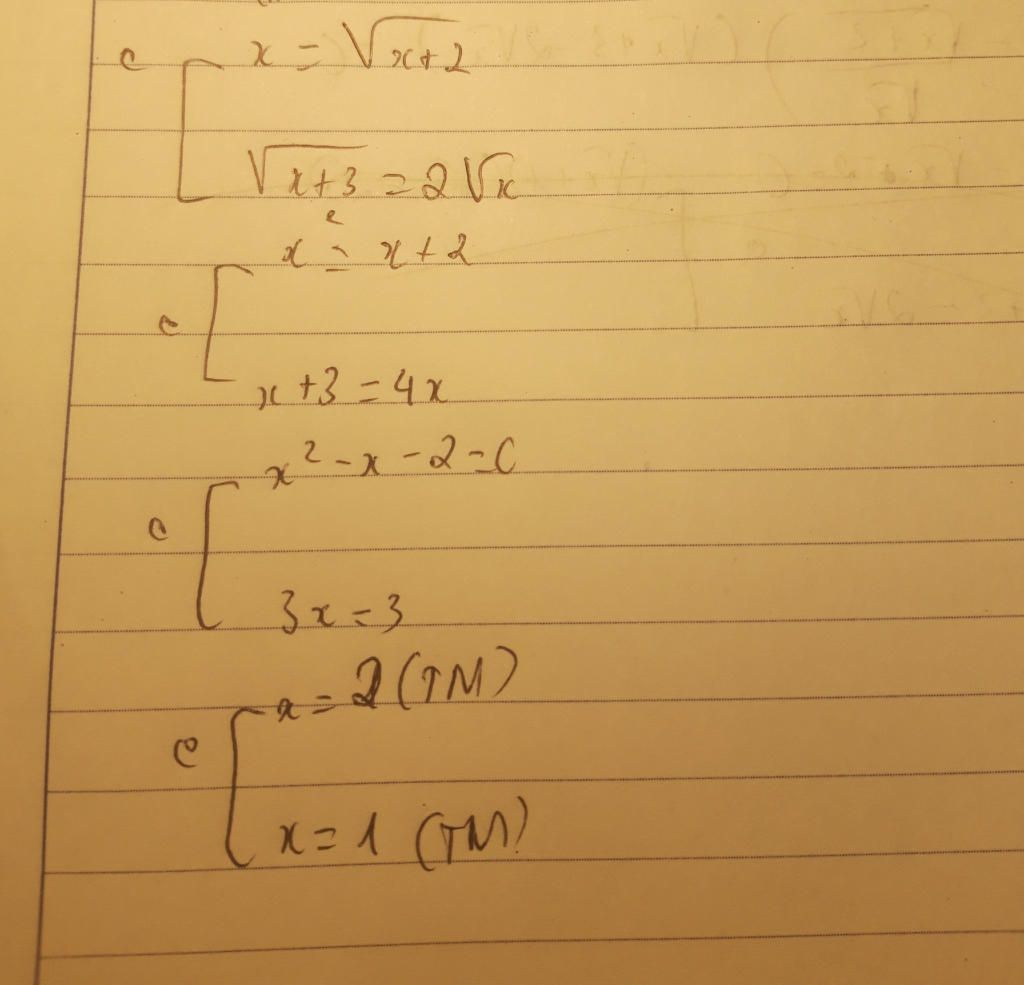 ⇔ [ x = √(x+2)
√(x+3) = 2√x
⇔ [ x² = x+2
x+3 = 4x
⇔ [ x² - x - 2 = 0
3x = 3
⇔ [ x = 2 (TM)
x = 1 (TM)